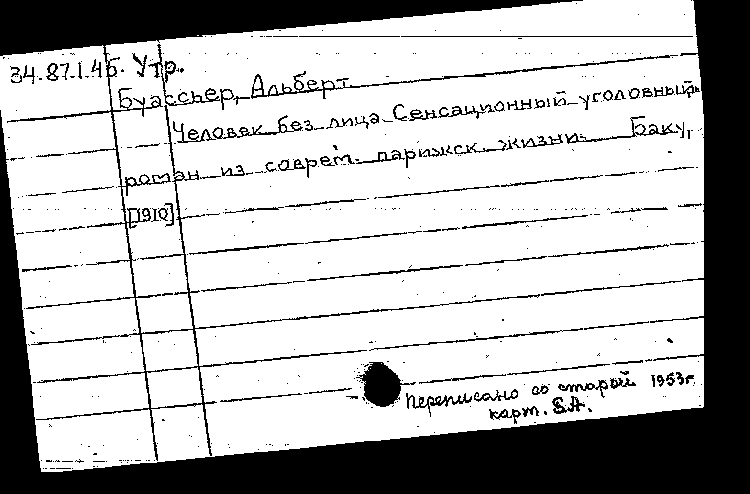 34.87.1.45. Утр.
Буассьер, Альберт
Человек без лица Сенсационный уголовный
роман из соврем. парижск. жизни. Баку,
[1910]
Переписано со старой 1953г
карт.